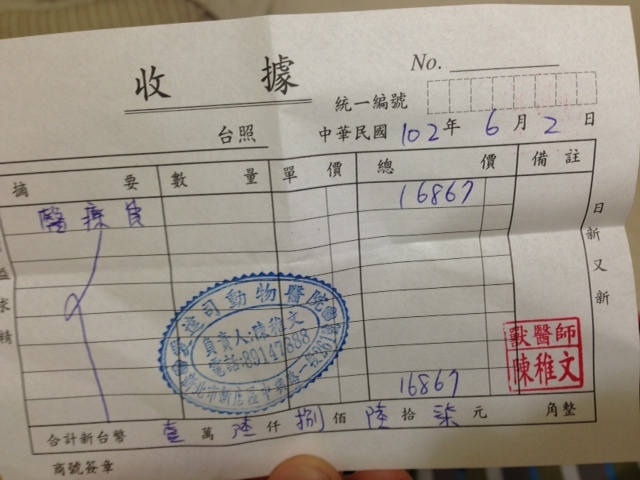 收據
No.
統一編號
台照
中華民國 102 年 6 月 2 日
摘要 數量 單價 總價 備註
醫療費 16867
日新又新
益求精
動物醫院
負責人:陳稚文
電話:89147688
獸醫師
陳稚文
16867
合計新台幣 壹 萬 陸 仟 捌 佰 陸 拾 柒 元 角整
商號簽章